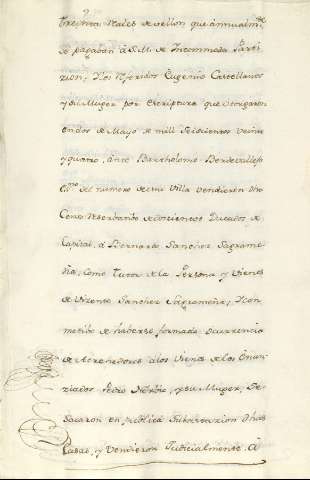 treinta Reales de vellon que annualm.te
se pagaban á S.M. de Incommoda Parti-
zion; Y los referidos Eugenio Castellanos
y su Muger por escriptura que otorgaron
en dos de Mayo de mill seiscientos veinte
y quatro, ante Bartholome Bordevallejo
es.no del numero de esta Villa vendieron dho
Censo reserbando doscientos Ducados de
Capital, á Bernardo Sanchez Sagrame-
ña, como tutor de la Persona y Vienes
de Vizente Sanchez Sagrameña; Y con
motibo de haberse formado ocurrencia
de Acrehedores á los Vienes de los Enun-
ziados Pedro y su Muger, Se
sacaron en publica Subastazion dhas
Casas, y Vendieron Judicialmente. á